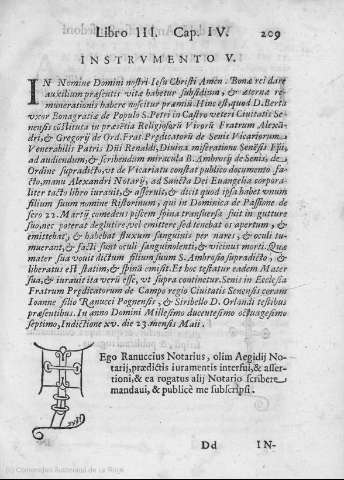 Libro III. Cap. IV. 209
INSTRVMENTO V.
IN Nomine Domini nostri Iesu Christi Amen. Bonæ rei dare
auxilium præsentis vitæ habetur subsidium, & æternæ re-
munerationis habere noscitur præmiũ. Hinc est, quod D. Berta
vxor Bonagratiæ de Populo S. Petri in Castro veteri Ciuitatis Se-
nensis cõstituta in præsẽtia Religiosorũ Virorũ Fratrum Alexã-
dri, & Gregorij de Ord. Frat. Prędicatorũ de Senis Vicariorum
Venerabilis Patris Dñi Renaldi, Diuina miseratione Senẽsis Epi,
ad audiendum, & scribendum miracula B. Ambrosij de Senis, de
Ordine supradicto, vt de Vicariatu constat publico documento fa-
cto, manu Alexandri Notarij, ad Sancta Dei Euangelia corpora-
liter tacto libro iurauit, & asseruit, & dicit quod ipsa habet vnum
filium suum nomine Ristorinum, qui in Dominica de Passione de
sero 22. Martij comedens piscem spina transuersa fuit in gutture
suo, nec poterat deglutire, vel emittere sed tenebat os apertum, &
emittebat, & habebat fluxum sanguinis per nares, & oculi tu-
muerant, & facti sunt oculi sanguinolenti, & vicinus morti. Quæ
mater sua vouit dictum filium suum S. Ambrosio supradicto, &
liberatus est statim, & spina emisit. Et hoc testatur eadem Mater
sua, & iurauit ita verũ esse, vt supra continetur. Senis in Ecclesia
Fratrum Prędicatorum de Campo regio Ciuitatis Senensis coram
Ioanne filio Ranucci Pognensis, & Siribello D. Orlandi testibus
præsentibus. In anno Domini Millesimo ducentesimo octuagesimo
septimo, Indictione xv. die 23. mensis Maij.
Ego Ranuccius Notarius, olim Aegidij No-
tarij, prædictis iuramentis interfui, & asser-
tioni, & ea rogatus alij Notario scribere
mandaui, & publicè me subscripsi.
Dd IN-